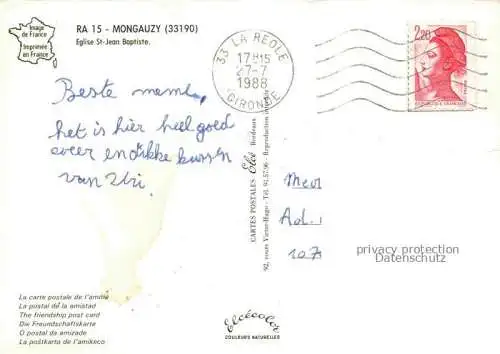 Image
de France
Imprimée
en France
RA 15 - MONGAUZY (33190)
Eglise St-Jean Baptiste.
33 LA REOLE
17H15
27-7
1988
GIRONDE
2,20
Beste meme,
het is hier heel goed
weer en dikke kussen
van Uri
CARTES POSTALES Elcé Bordeaux
92, cours Victor-Hugo - Tél. 91.57.96 - Reproduction
Mevr
Ad.
107
privacy protection
watermark
La carte postale de l'amitié
La postal de la amistad
The friendship post card
Die Freundschaftskarte
O postal da amizade
La poŝtkarta de l'amikeco
Elcécolor
COULEURS NATURELLES